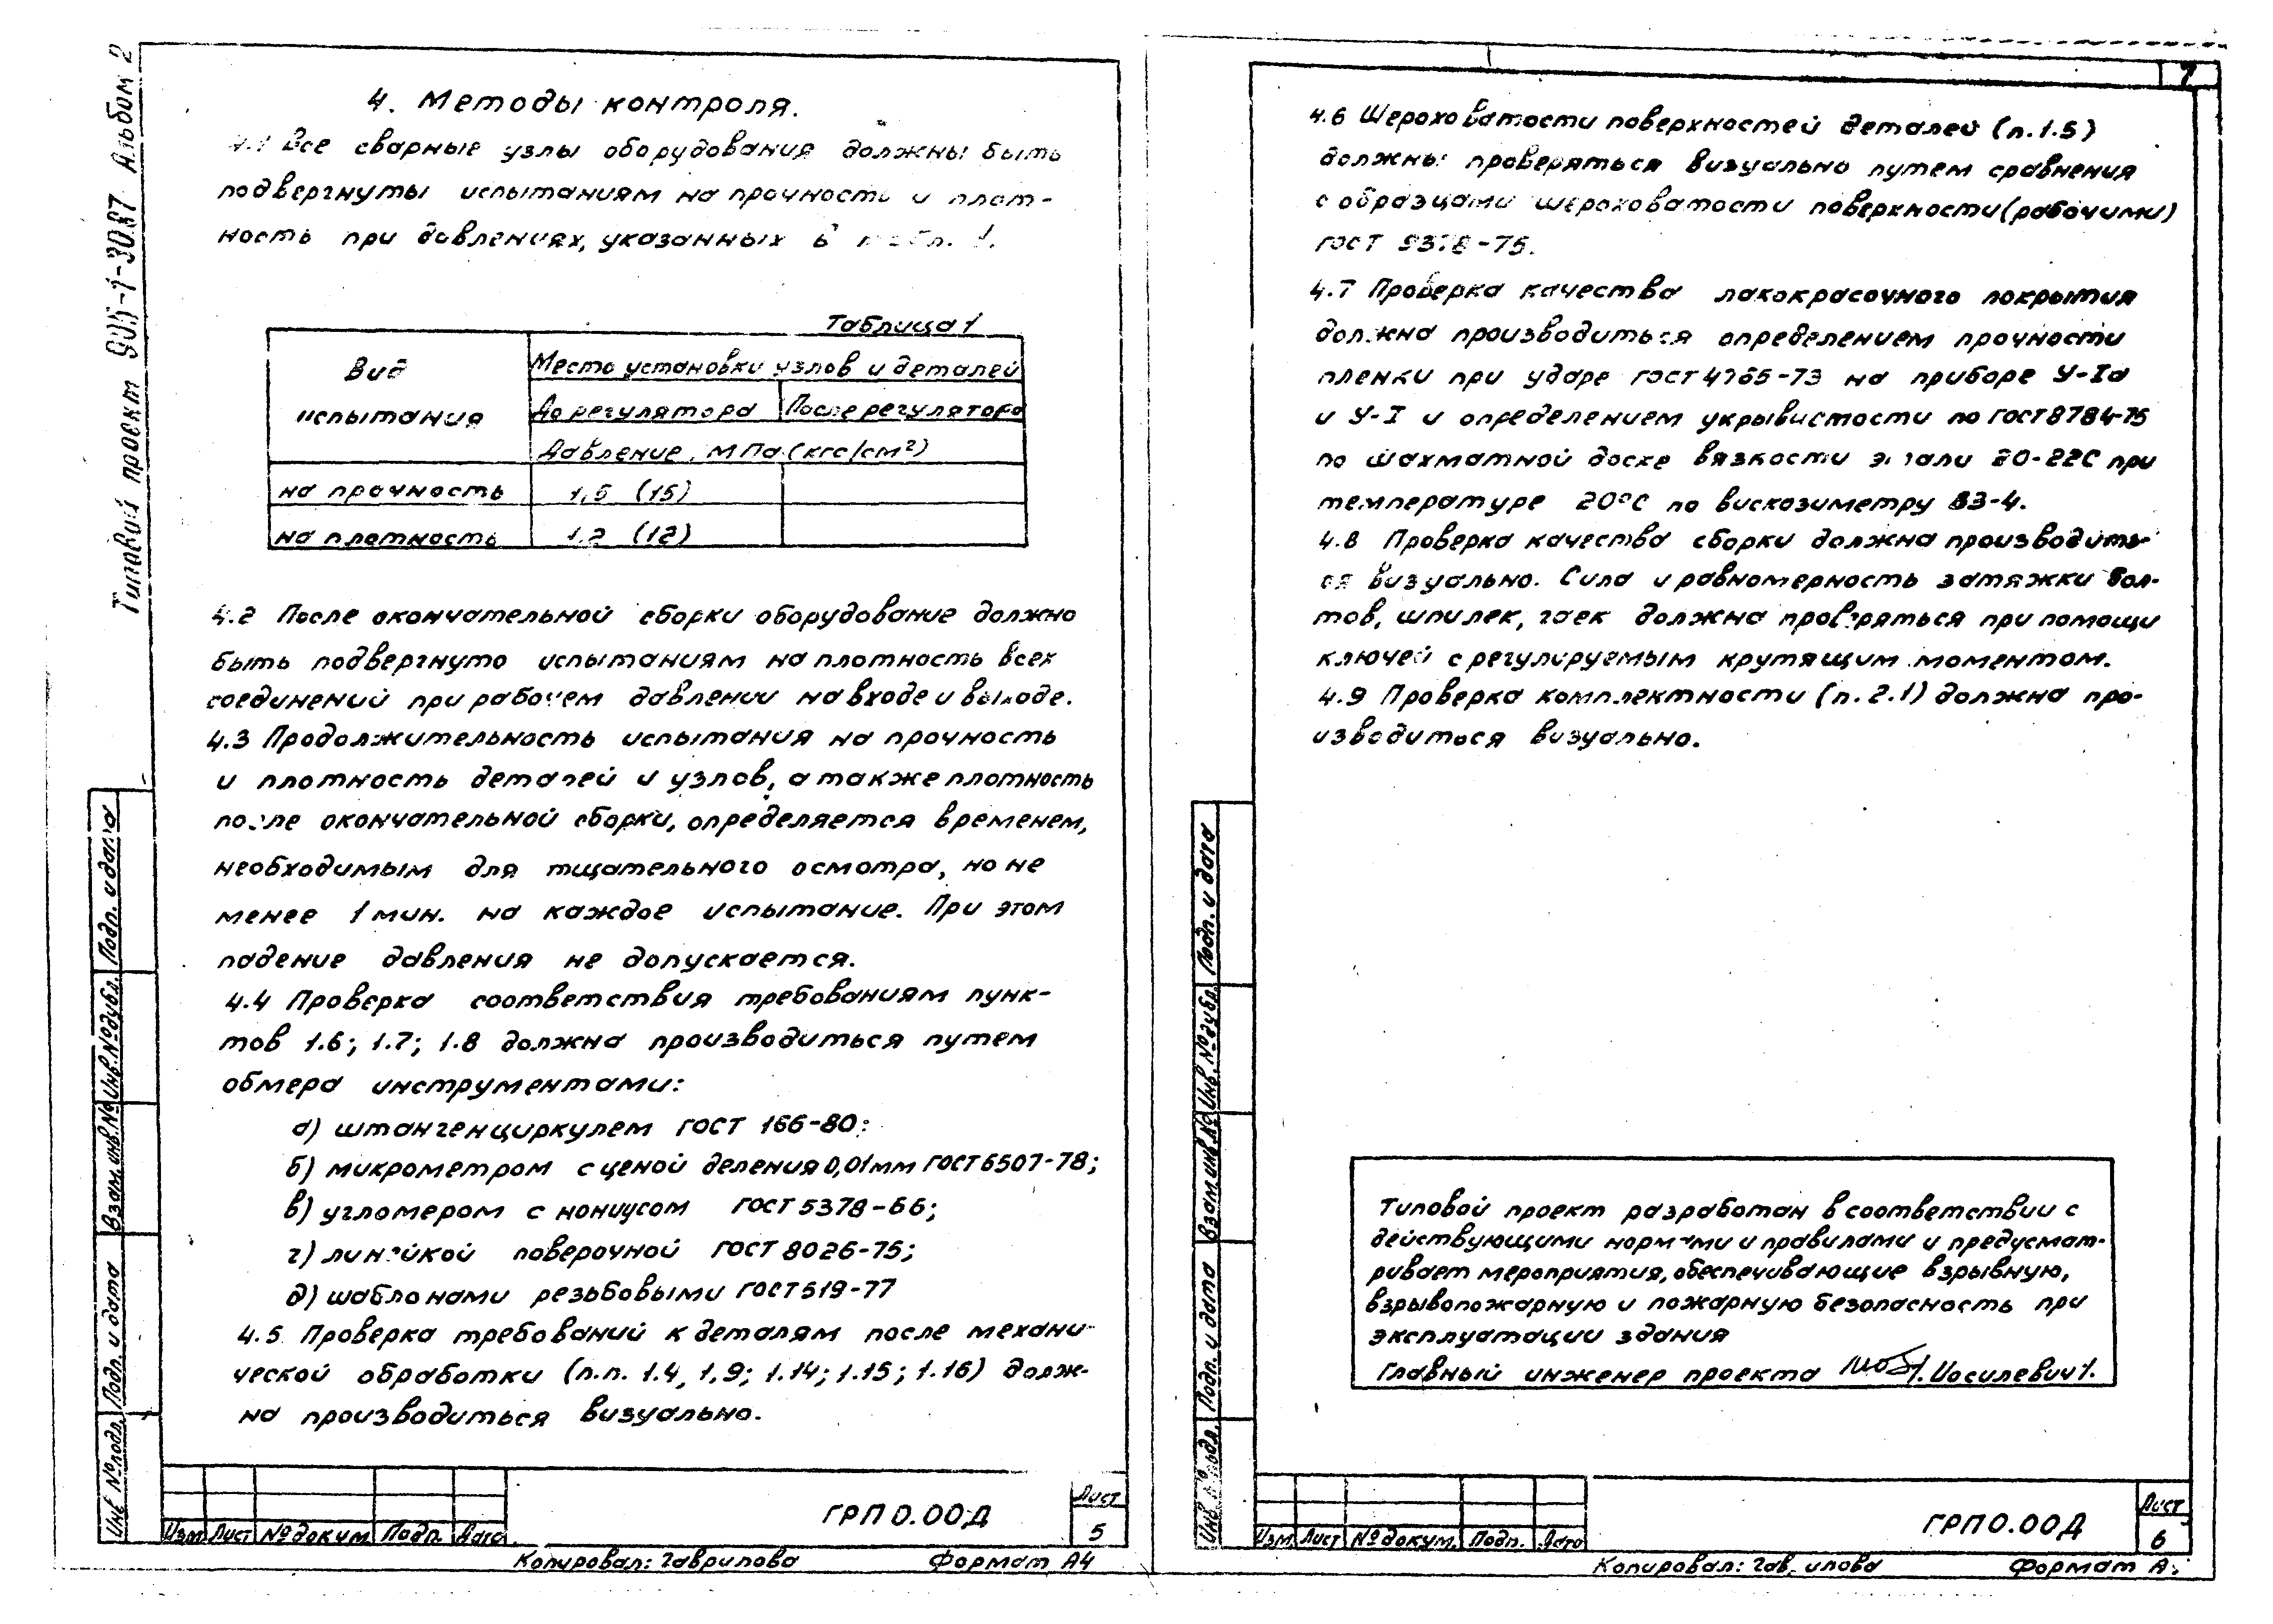 Типовой проект 905-1-30.87 Альбом 2
4. Методы контроля.
4.1 Все сварные узлы оборудования должны быть
подвергнуты испытаниям на прочность и плот-
ность при давлениях, указанных в табл. 1.
Таблица 1
Вид испытания
Место установки узлов и деталей
До регулятора После регулятора
Давление, МПа (кгс/см²)
на прочность 1,5 (15)
на плотность 1,2 (12)
4.2 После окончательной сборки оборудование должно
быть подвергнуто испытаниям на плотность всех
соединений при рабочем давлении на входе и выходе.
4.3 Продолжительность испытания на прочность
и плотность деталей и узлов, а также плотность
после окончательной сборки, определяется временем,
необходимым для тщательного осмотра, но не
менее 1 мин. на каждое испытание. При этом
падение давления не допускается.
4.4 Проверка соответствия требованиям пунк-
тов 1.6; 1.7; 1.8 должна производиться путем
обмера инструментами:
а) штангенциркулем ГОСТ 166-80;
б) микрометром с ценой деления 0,01мм ГОСТ 6507-78;
в) угломером с нониусом ГОСТ 5378-66;
г) линейкой поверочной ГОСТ 8026-75;
д) шаблонами резьбовыми ГОСТ 519-77
4.5 Проверка требований к деталям после механи-
ческой обработки (п.п. 1.4, 1,9; 1.14; 1.15; 1.16) долж-
на производиться визуально.
Инв № подл. Подп. и дата Взам. инв. № Инв. № дубл. Подп. и дата
Изм Лист № докум. Подп. Дата
ГРП 0.00Д
Лист
5
Копировал: Гаврилова Формат А4
7
4.6 Шероховатости поверхностей деталей (п. 1.5)
должны проверяться визуально путем сравнения
с образцами шероховатости поверхности (рабочими)
ГОСТ 9378-75.
4.7 Проверка качества лакокрасочного покрытия
должна производиться определением прочности
пленки при ударе ГОСТ 4765-73 на приборе У-Iа
и У-I и определением укрывистости по ГОСТ 8784-75
по шахматной доске вязкости эмали 20-22С при
температуре 20°С по вискозиметру ВЗ-4.
4.8 Проверка качества сборки должна производить-
ся визуально. Сила и равномерность затяжки бол-
тов, шпилек, гаек должна проверяться при помощи
ключей с регулируемым крутящим моментом.
4.9 Проверка комплектности (п. 2.1) должна про-
изводиться визуально.
Типовой проект разработан в соответствии с
действующими нормами и правилами и предусмат-
ривает мероприятия, обеспечивающие взрывную,
взрывопожарную и пожарную безопасность при
эксплуатации здания
Главный инженер проекта Иосилевич.
Инв. № подл. Подп. и дата Взам инв. № Инв. № дубл. Подп. и дата
Изм. Лист № докум. Подп. Дата
ГРП 0.00Д
Лист
6
Копировал: Гаврилова Формат А